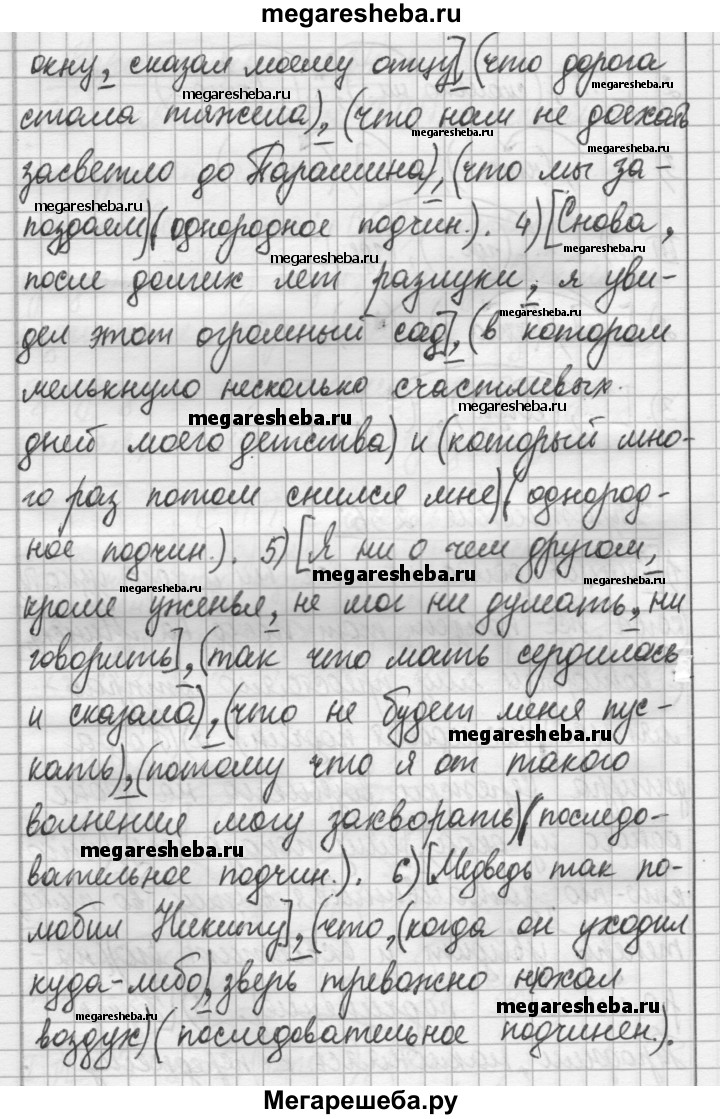 megaresheba.ru
окну, сказал моему отцу], (что дорога
megaresheba.ru
megaresheba.ru
стала тяжела), (что нам не доехать
megaresheba.ru
megaresheba.ru
засветло до Парашина), (что мы за-
megaresheba.ru
поздаем) (однородное подчин.). 4) [Снова,
megaresheba.ru
после долгих лет разлуки, я уви-
megaresheba.ru
дел этот огромный сад], (в котором
мелькнуло несколько счастливых
megaresheba.ru
megaresheba.ru
дней моего детства) и (который мно-
го раз потом снился мне) (однород-
ное подчин.). 5) [Я ни о чем другом,
megaresheba.ru
megaresheba.ru
megaresheba.ru
кроме уженья, не мог ни думать, ни
говорить], (так что мать сердилась
и сказала), (что не будет меня пус-
megaresheba.ru
кать), (потому что я от такого
волнения могу захворать) (последо-
megaresheba.ru
вательное подчин.). 6) [Медведь так по-
любил Никиту], (что, (когда он уходил
куда-либо), зверь тревожно нюхал
megaresheba.ru
воздух) (последовательное подчинен.).
Мегарешеба.ру